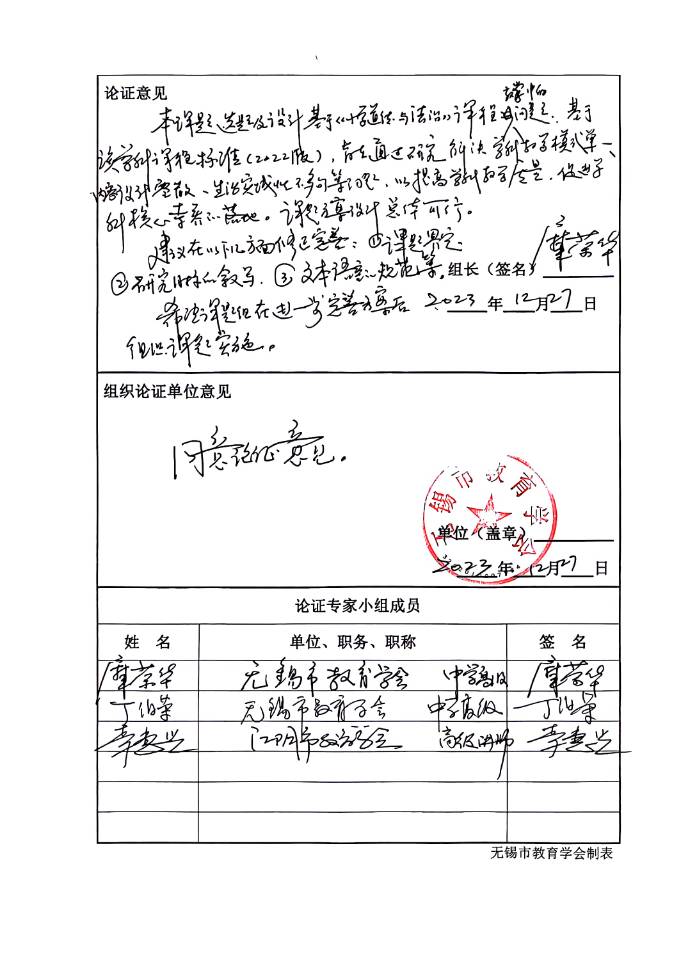 论证意见
本课题选题及设计基于《小学道德与法治》课程问题，基于
该学科课程标准(2022版)，旨在通过研究解决学科教学模式单一、
内容设计零散、生活实践性不够等问题，以提高学科教学质量，促进学
科核心素养的落地。课题方案设计总体可行。
建议在以下几方面修正完善：①课题界定
②研究目标的叙写、③文本语言的规范等。组长（签名）
希望课题组在进一步完善方案后 2023 年 12 月 27 日
组织课题实施。
组织论证单位意见
同意论证意见。
无锡市教育学会
单位（盖章）
2023 年 12 月 27 日
论证专家小组成员
姓 名 单位、职务、职称 签 名
荣华 无锡市教育学会 中学高级 荣华
丁伯荣 无锡市教育学会 中学高级 丁伯荣
江阴市教育学会 高级讲师
无锡市教育学会制表